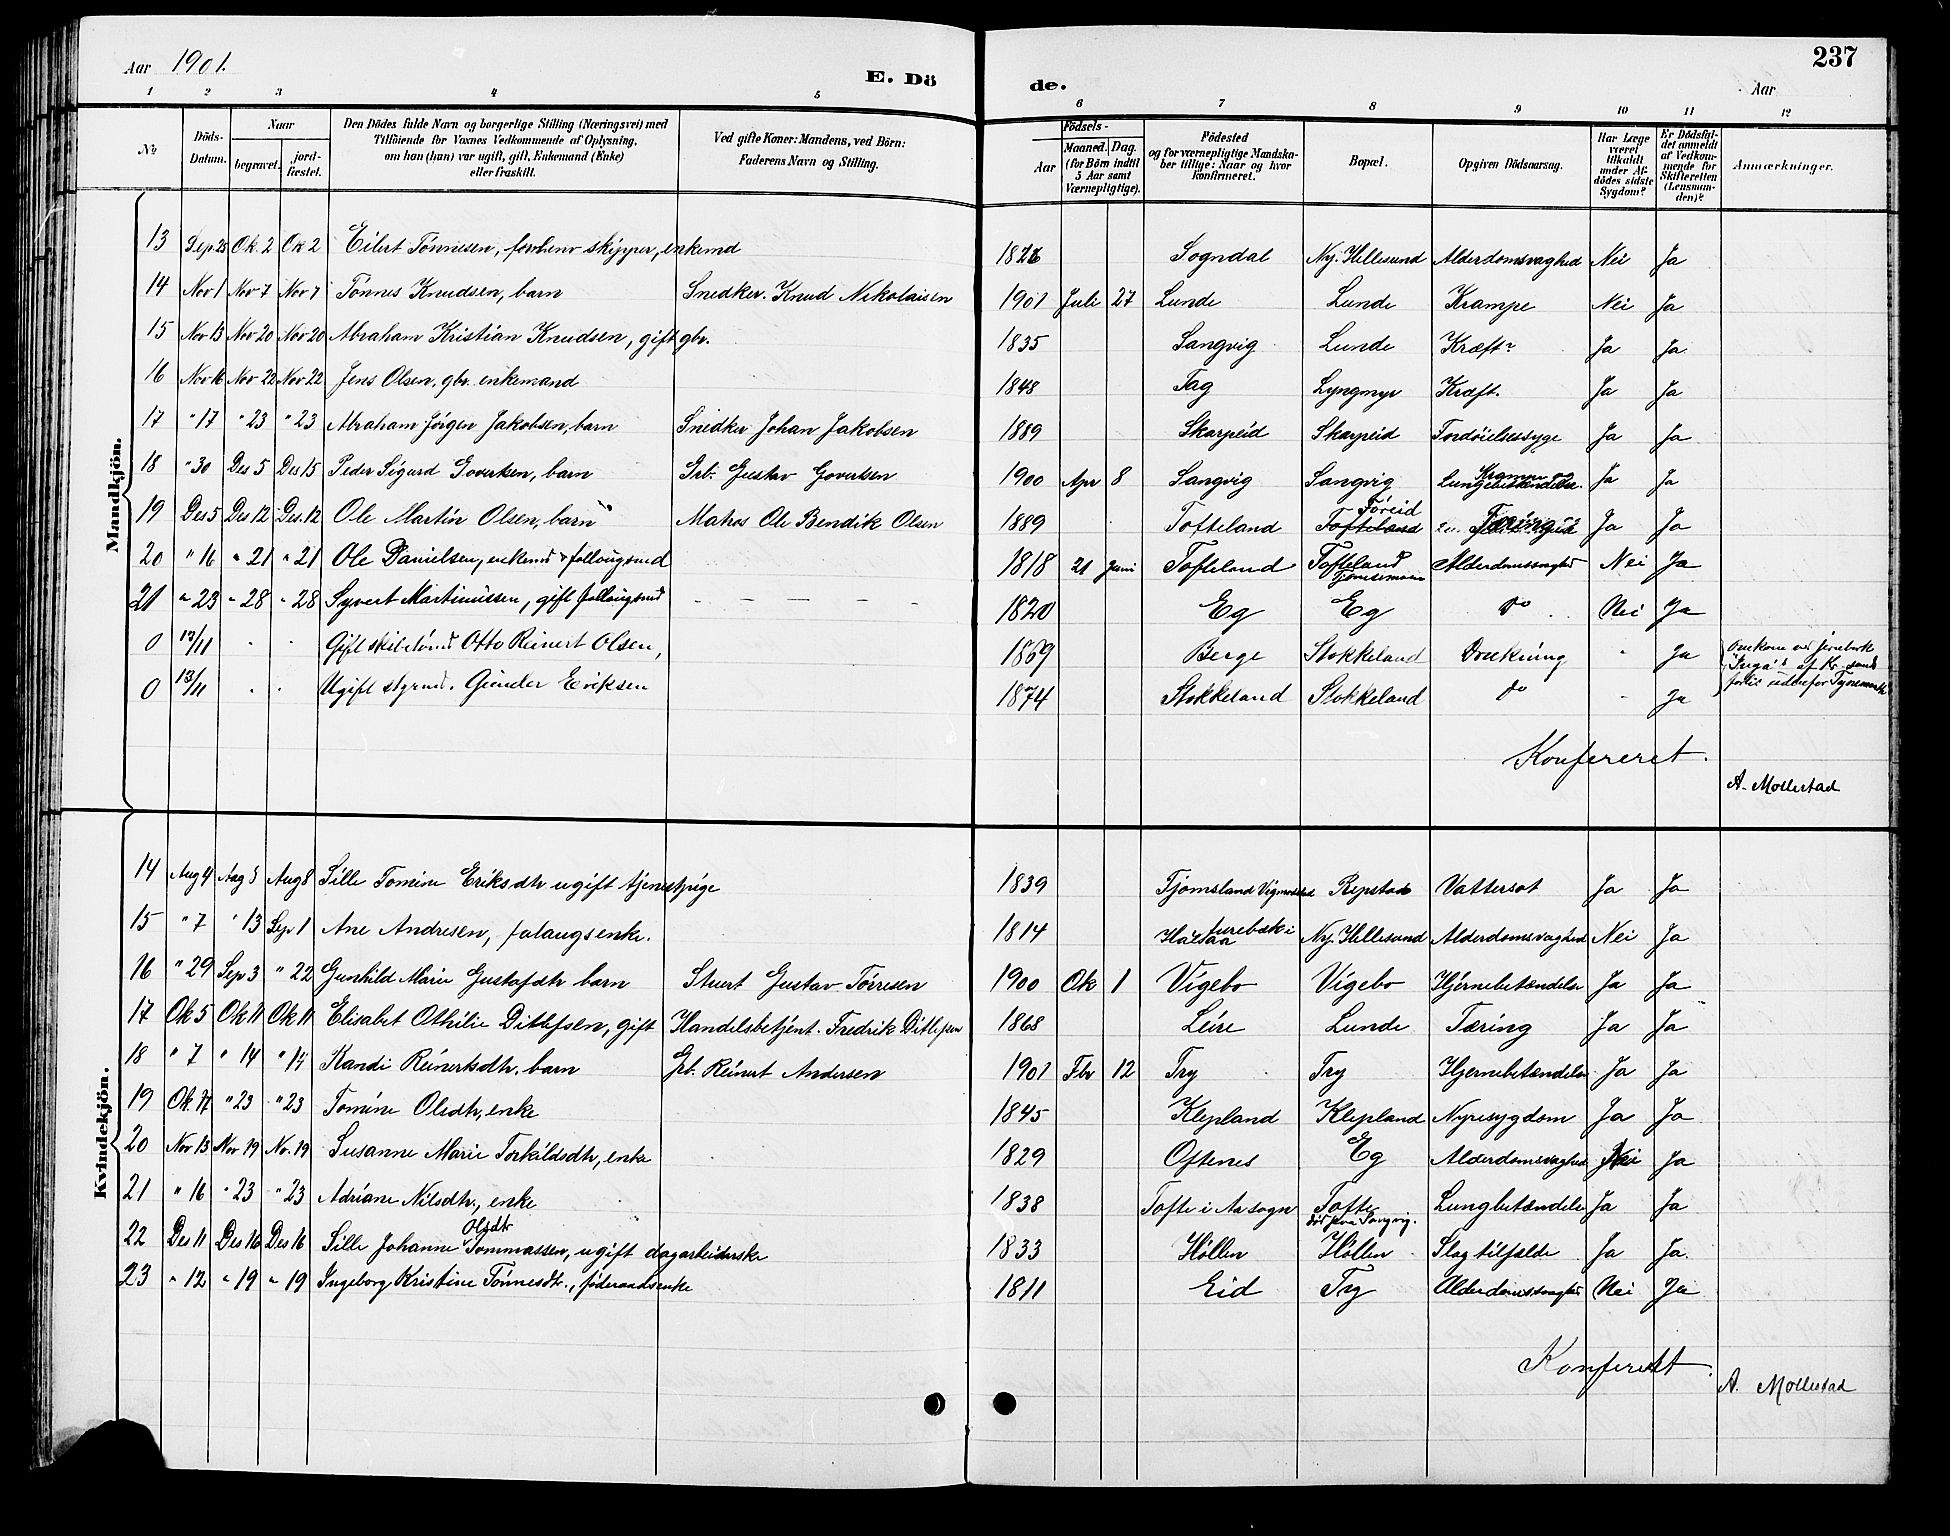 Aar 1901. E. Dö de. Aar 237
1 2 3 4 5 6 7 8 9 10 11 12
№ Döds-Datum. Naar begravet. jord-fæstet. Den Dödes fulde Navn og borgerlige Stilling (Næringsvei) med Tilföiende for Voxnes Vedkommende af Oplysning, om han (hun) var ugift, gift, Enkemand (Enke) eller fraskilt. Ved gifte Koner: Mandens, ved Börn: Faderens Navn og Stilling. Födsels- Aar Maaned. Dag. (for Börn indtil 5 Aar samt Værnepligtige). Födested og for værnepligtige Mandska-ber tillige: Naar og hvor konfirmeret. Bopæl. Opgiven Dödsaarsag. Har Læge været tilkaldt under Af-dödes sidste Sygdom? Er Dödsfal-det anmeldt af Vedkom-mende for Skifteretten (Lensman-den)? Anmærkninger.
Mandkjön.
13 Sep 28 Ok. 2 Ok 2 Eilert Tønnesen, forhenv skipper, enkemd 1826 Sogndal Ny. Hellesund Alderdomsvaghed Nei Ja
14 Nov 1 Nov 7 Nov 7 Tønnes Knudsen, barn Snedker. Knud Nikolaisen 1901 Juli 27 Lunde Lunde Krampe Nei Ja
15 Nov 13 Nov 20 Nov 20 Abraham Kristian Knudsen, gift gbr. 1835 Langvig Lunde Kræft? Ja Ja
16 Nov 16 Nov 22 Nov 22 Jens Olsen, gbr. enkemand 1848 Tag Lyngmyr Kræft. Ja Ja
17 " 17 " 23 " 23 Abraham Jørgen Jakobsen, barn Snedker Johan Jakobsen 1889 Skarpeid Skarpeid Fordøielsessyge Ja Ja
18 " 30 Des 5 Des 15 Peder Sigurd Govertsen, barn Grb. Gustav Govertsen 1900 Apr 8 Langvig Langvig Krampe og Lungebetændelse. Ja Ja
19 Des 5 Des 12 Des. 12 Ole Martin Olsen, barn Matros Ole Bendik Olsen 1889 Tofteland Tofteland Føreid Tæring Ja Ja
20 " 16 " 21 " 21 Ole Danielsen, enkemd follougsmd 1818 21 Juni Tofteland Tofteland Alderdomssvaghed Nei Ja
21 " 23 " 28 " 28 Syvert Martinussen, gift follougsmd — — — — 1820 Eg Eg do Nei Ja
0 13/11 " " Gift skibstømd Otto Reinert Olsen, 1869 Berge Stokkeland Drukning " Ja Omkom ved jernbark "Inga" af Kr. sand
0 13/11 " " Ugift styrmd. Gunder Eriksen 1874 Stokkeland Stokkeland do " Ja forlis udenfor Tynemouth
Konfereret.
A. Mollestad
Kvindekjön.
14 Aug 4 Aug 8 Aug 8 Sille Tomine Eriksdtr ugift tjenestpige 1839 Tjomsland Vigmostad Repstad Vattersot Ja Ja
15 " 7 " 13 Sep 1 Ane Andresen, folaugsenke. 1814 i Halsaa Ny. Hellesund Alderdomsvaghed Nei Ja
16 " 29 Sep 3 " 22 Gunhild Marie Gustafdtr barn Stuert Gustav Tørresen 1900 Ok 1 Vigebo Vigebo Hjernebetændelse Ja Ja
17 Ok 5 Ok 11 Ok 11 Elisabet Othilie Ditlefsen, gift Handelsbetjent. Fredrik Ditlefsen 1868 Leire Lunde Tæring Ja Ja
18 " 7 " 14 " 14 Kandi Reinertsdtr. barn Grb. Reinert Andersen 1901 Fbr 12 Try Try Hjernebetændelse Ja Ja
19 Ok. 17 " 23 " 23 Tomine Olsdtr, enke 1845 Klepland Klepland Nyresygdom Ja Ja
20 Nov 13 Nov 19 Nov. 19 Susanne Marie Torkildsdtr, enke 1829 Oftenes Eg Alderdomsvaghed Nei Ja
21 " 16 " 23 " 23 Adriane Nilsdtr., enke 1838 Tofte i Aasogn Tofte Lungbetændelse Ja Ja
22 Des 11 Des 16 Des 16 Sille Johanne Olsdtr Tommassen, ugift dagarbeiderske 1833 Høllen død paa Langvig. Høllen Slagtilfælde Ja Ja.
23 " 12 " 19 " 19 Ingeborg Kristine Tønnesdtr., føderaadsenke 1811 Eid Try Alderdomssvaghed Nei Ja
Konfereret.
A. Mollestad